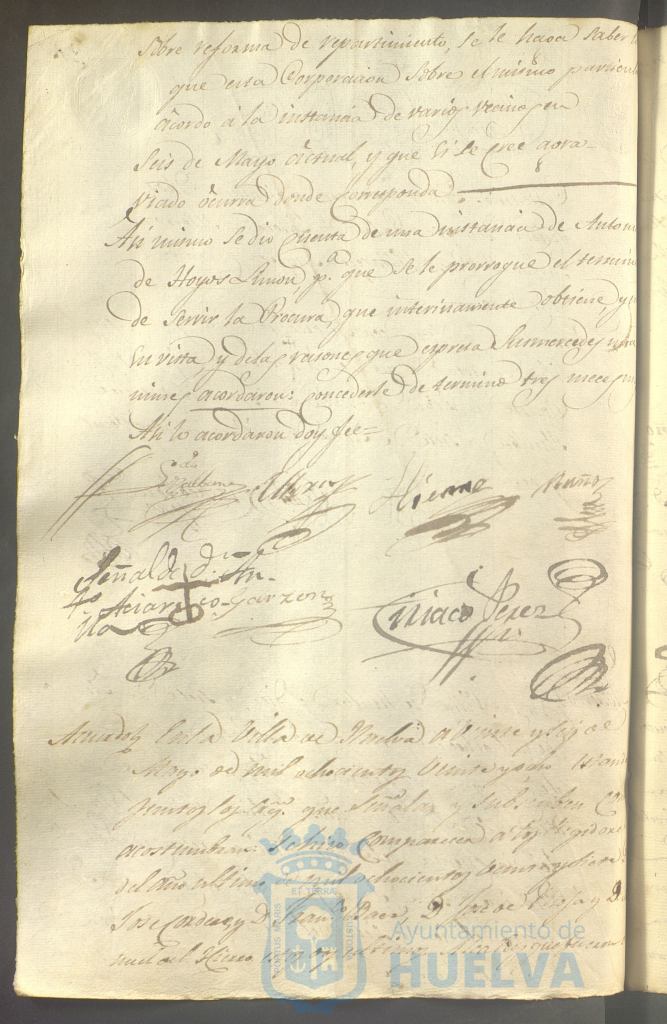 Sobre reforma de repartimiento, se le haga saber lo
que esta Corporacion sobre el mismo particul
acordo á la instancia de varios vecinos en
Seis de Mayo actual, y que si se cree agra-
viado ocurra donde corresponda
Asi mismo se dio cuenta de una instancia de Anton
de Hoyos Limon, p.ª que se le prorrogue el termino
de servir la Procura, que interinamente obtiene y
en vista, y de las rasones que expresa Sus mercedes una
nimes acordaron: concederle de termino tres meces
Asi lo acordaron doy fee=
Hierro Muñoz
Señal de D.n An.
Garzon
Ciriaco Perez
Acuerdo En la Villa de Huelva a veinte y seis de
Mayo de mil ochocientos veinte y ocho
juntos los Sres. que Señalan y Subscriben
acostumbran: Se hizo comparecer a los Regidores
del año ultimo de mil ochocientos veinte y siete
Jose Cordero, y D.n Fran.co Baez, D.n Jose de
nuel del Hierro
PORTUS MARIS
ET TERRA
CUSTODIA
Ayuntamiento de
HUELVA